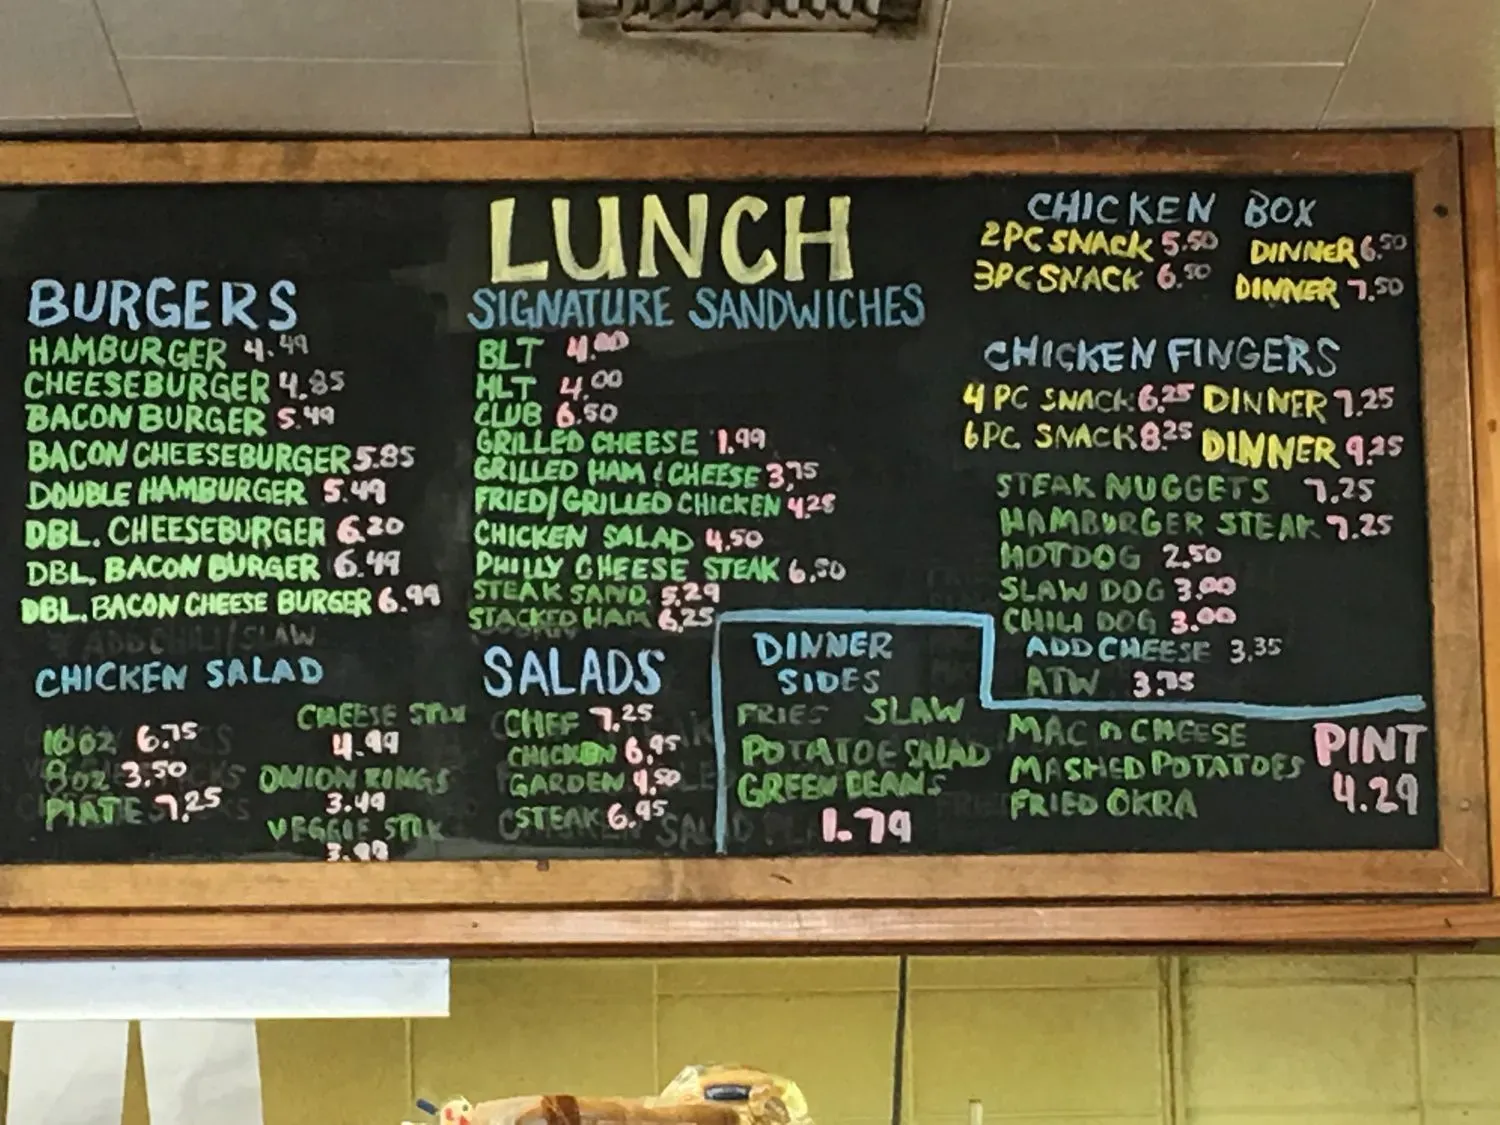 LUNCH
BURGERS
HAMBURGER 4.49
CHEESEBURGER 4.85
BACON BURGER 5.49
BACON CHEESEBURGER 5.85
DOUBLE HAMBURGER 5.49
DBL. CHEESEBURGER 6.20
DBL. BACON BURGER 6.49
DBL. BACON CHEESE BURGER 6.99
ADD CHILI/SLAW
CHICKEN SALAD
16 OZ 6.75
8 OZ 3.50
PLATE 7.25
CHEESE STIX
4.99
ONION RINGS
3.49
VEGGIE STIX
3.99
SIGNATURE SANDWICHES
BLT 4.00
HLT 4.00
CLUB 6.50
GRILLED CHEESE 1.99
GRILLED HAM & CHEESE 3.75
FRIED/GRILLED CHICKEN 4.25
CHICKEN SALAD 4.50
PHILLY CHEESE STEAK 6.50
STEAK SAND. 5.29
STACKED HAM 6.25
SALADS
CHEF 7.25
CHICKEN 6.95
GARDEN 4.50
STEAK 6.95
CHICKEN BOX
2PC SNACK 5.50 DINNER 6.50
3PC SNACK 6.50 DINNER 7.50
CHICKEN FINGERS
4 PC SNACK 6.25 DINNER 7.25
6 PC. SNACK 8.25 DINNER 9.25
STEAK NUGGETS 7.25
HAMBURGER STEAK 7.25
HOTDOG 2.50
SLAW DOG 3.00
CHILI DOG 3.00
ADD CHEESE 3.35
ATW 3.75
DINNER
SIDES
FRIES SLAW
POTATOE SALAD
GREEN BEANS
1.79
MAC n CHEESE
MASHED POTATOES
FRIED OKRA
PINT
4.29